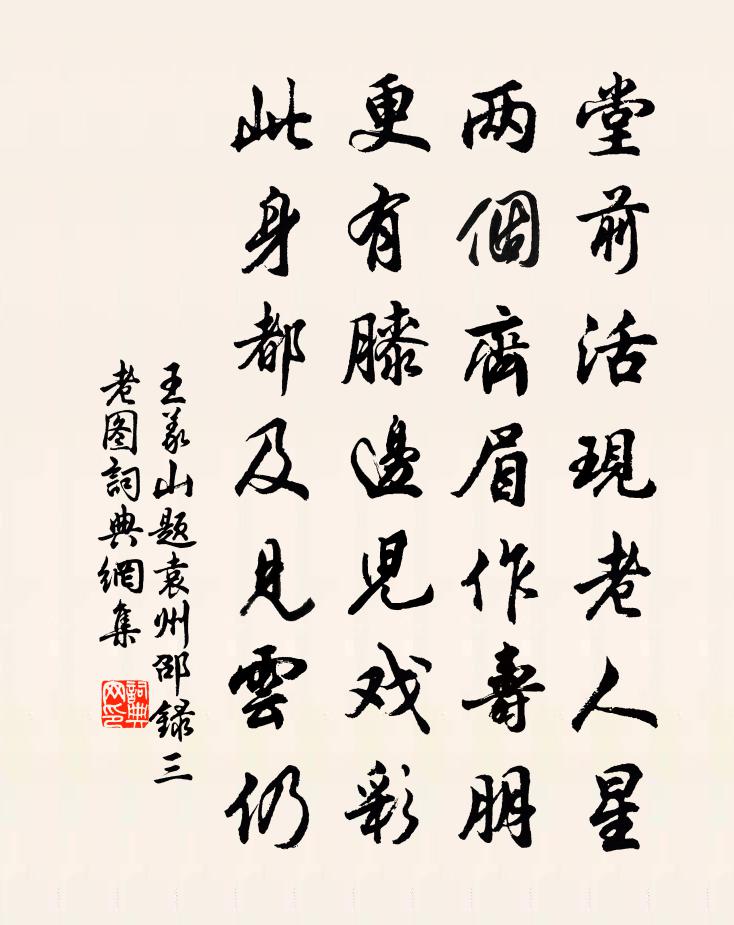 堂前活現老人星
两個齊眉作壽朋
更有膝邊児戏彩
此身都及見雲仍
王义山题袁州邵録三
老图詞典網集
詞典网印